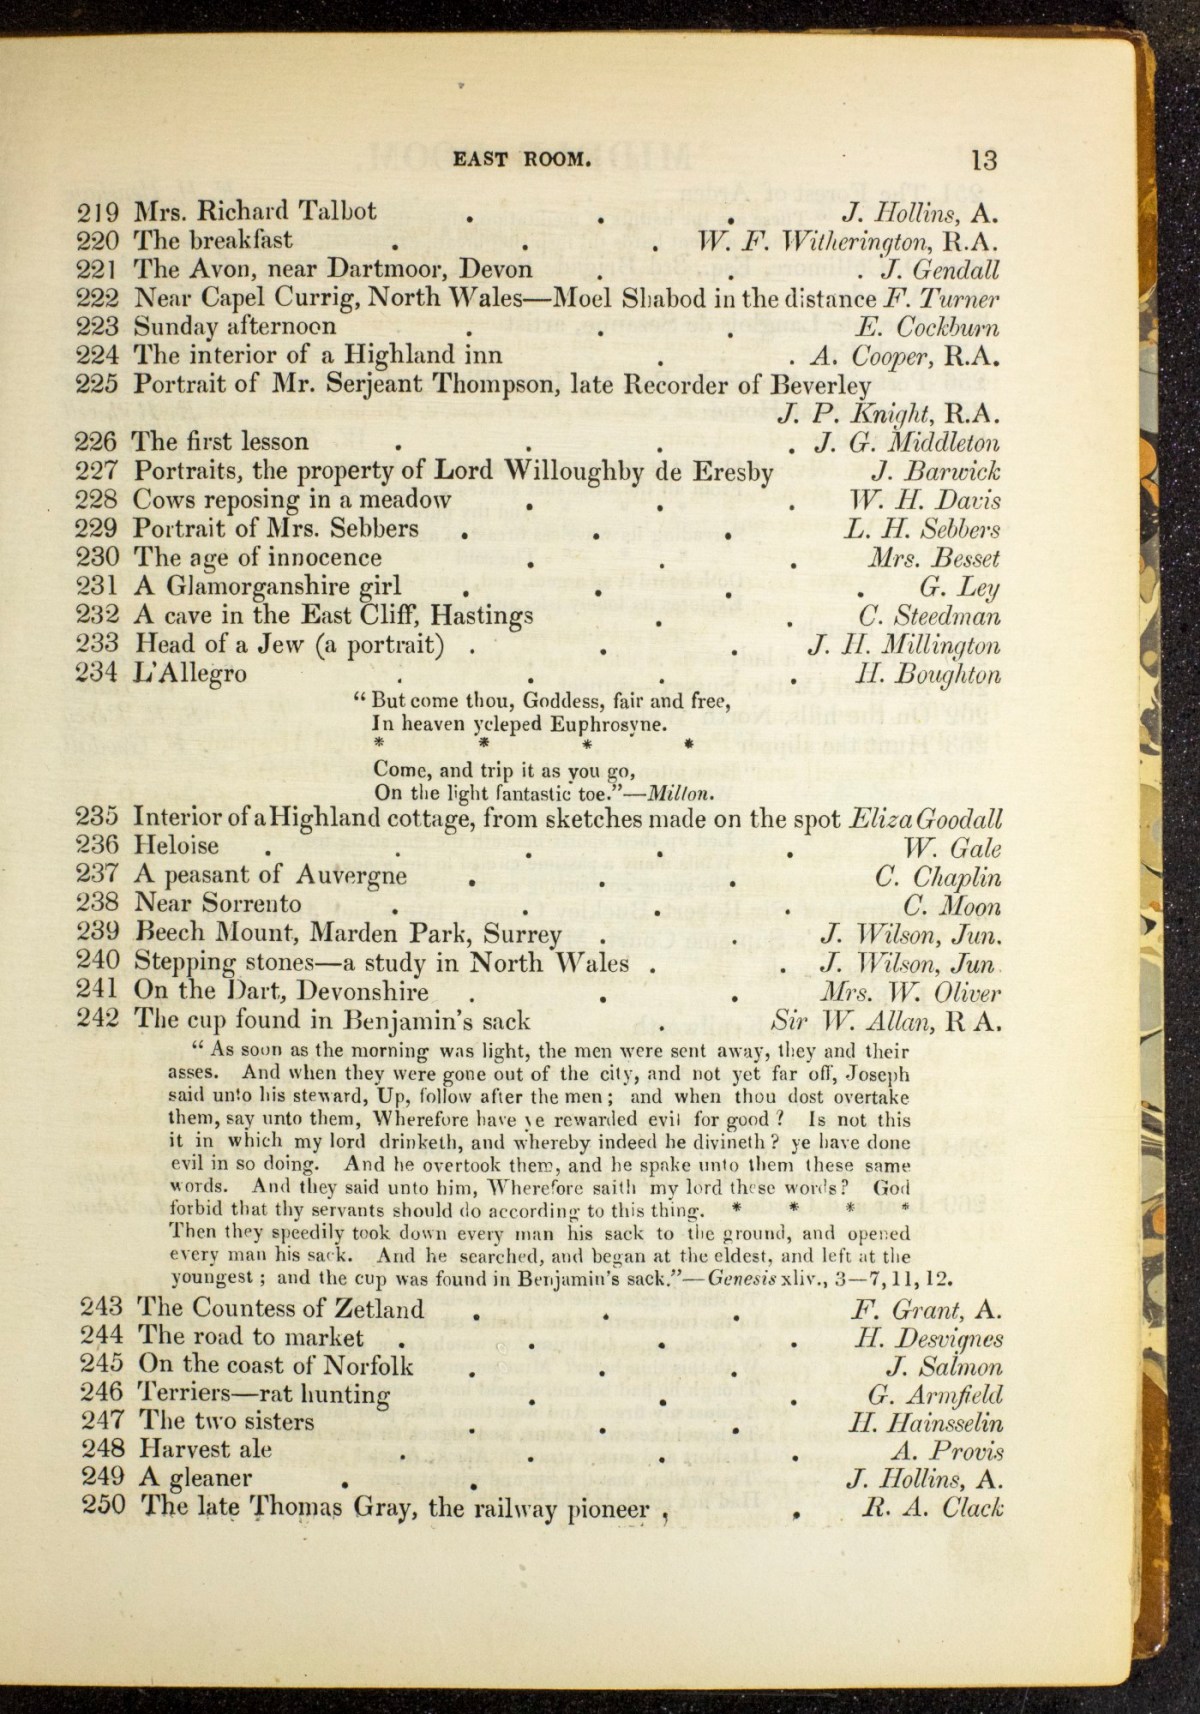 EAST ROOM. 13
219 Mrs. Richard Talbot . . . J. Hollins, A.
220 The breakfast . . . W. F. Witherington, R.A.
221 The Avon, near Dartmoor, Devon . . . J. Gendall
222 Near Capel Currig, North Wales—Moel Shabod in the distance F. Turner
223 Sunday afternoon . . . E. Cockburn
224 The interior of a Highland inn . . A. Cooper, R.A.
225 Portrait of Mr. Serjeant Thompson, late Recorder of Beverley
J. P. Knight, R.A.
226 The first lesson . . . . J. G. Middleton
227 Portraits, the property of Lord Willoughby de Eresby J. Barwick
228 Cows reposing in a meadow . . . W. H. Davis
229 Portrait of Mrs. Sebbers . . . L. H. Sebbers
230 The age of innocence . . . Mrs. Besset
231 A Glamorganshire girl . . . . G. Ley
232 A cave in the East Cliff, Hastings . . C. Steedman
233 Head of a Jew (a portrait) . . . J. H. Millington
234 L'Allegro . . . . H. Boughton
“ But come thou, Goddess, fair and free,
In heaven ycleped Euphrosyne.
* * * *
Come, and trip it as you go,
On the light fantastic toe.”—Milton.
235 Interior of a Highland cottage, from sketches made on the spot Eliza Goodall
236 Heloise . . . . . W. Gale
237 A peasant of Auvergne . . . C. Chaplin
238 Near Sorrento . . . . C. Moon
239 Beech Mount, Marden Park, Surrey . . J. Wilson, Jun.
240 Stepping stones—a study in North Wales . . J. Wilson, Jun.
241 On the Dart, Devonshire . . . Mrs. W. Oliver
242 The cup found in Benjamin's sack . Sir W. Allan, R A.
“ As soon as the morning was light, the men were sent away, they and their
asses. And when they were gone out of the city, and not yet far off, Joseph
said unto his steward, Up, follow after the men ; and when thou dost overtake
them, say unto them, Wherefore have ye rewarded evil for good ? Is not this
it in which my lord drinketh, and whereby indeed he divineth ? ye have done
evil in so doing. And he overtook them, and he spake unto them these same
words. And they said unto him, Wherefore saith my lord these words? God
forbid that thy servants should do according to this thing. * * * *
Then they speedily took down every man his sack to the ground, and opened
every man his sack. And he searched, and began at the eldest, and left at the
youngest ; and the cup was found in Benjamin's sack.”—Genesis xliv., 3—7, 11, 12.
243 The Countess of Zetland . . . F. Grant, A.
244 The road to market . . . . H. Desvignes
245 On the coast of Norfolk . . . J. Salmon
246 Terriers—rat hunting . . . G. Armfield
247 The two sisters . . . H. Hainsselin
248 Harvest ale . . . . A. Provis
249 A gleaner . . J. Hollins, A.
250 The late Thomas Gray, the railway pioneer , . R. A. Clack